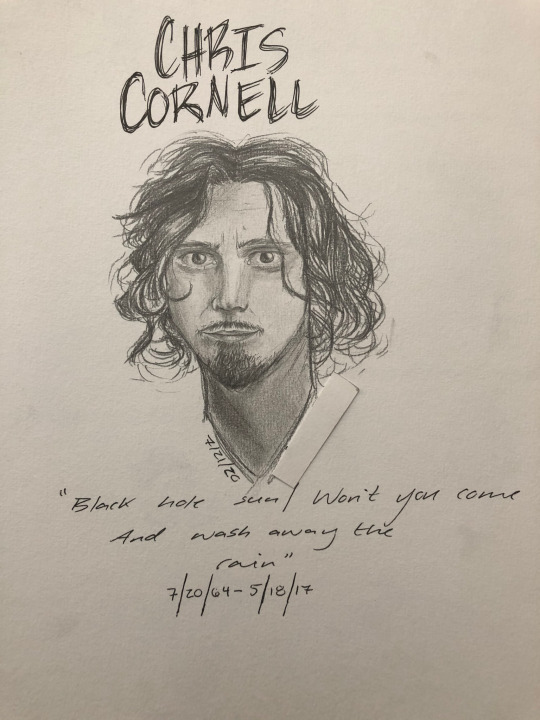 CHRIS
CORNELL
7/21/20
"Black hole sun / Won't you come
And wash away the
rain"
7/20/64 - 5/18/17